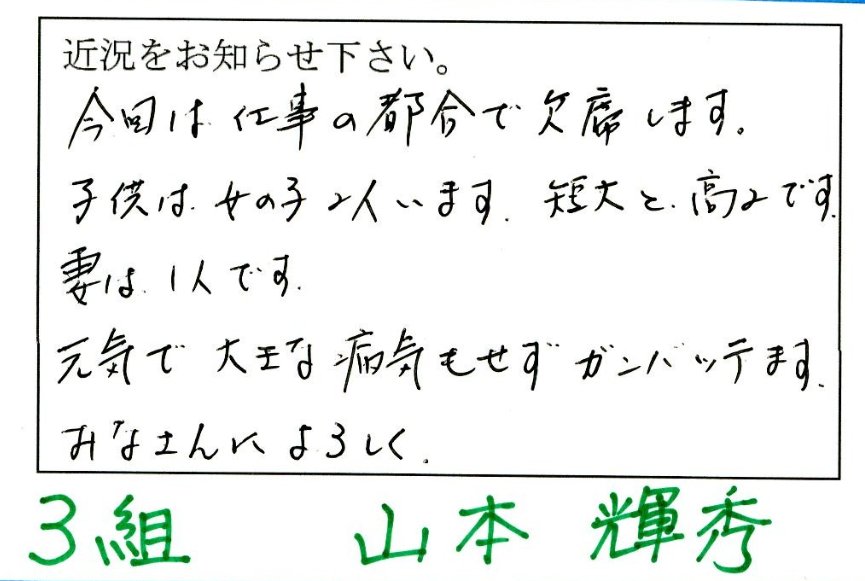 近況をお知らせ下さい。
今回は仕事の都合で欠席します。
子供は女の子2人います. 短大と高2です.
妻は1人です.
元気で大王な病気もせずガンバッテます.
みなさんによろしく.
3組 山本 輝秀